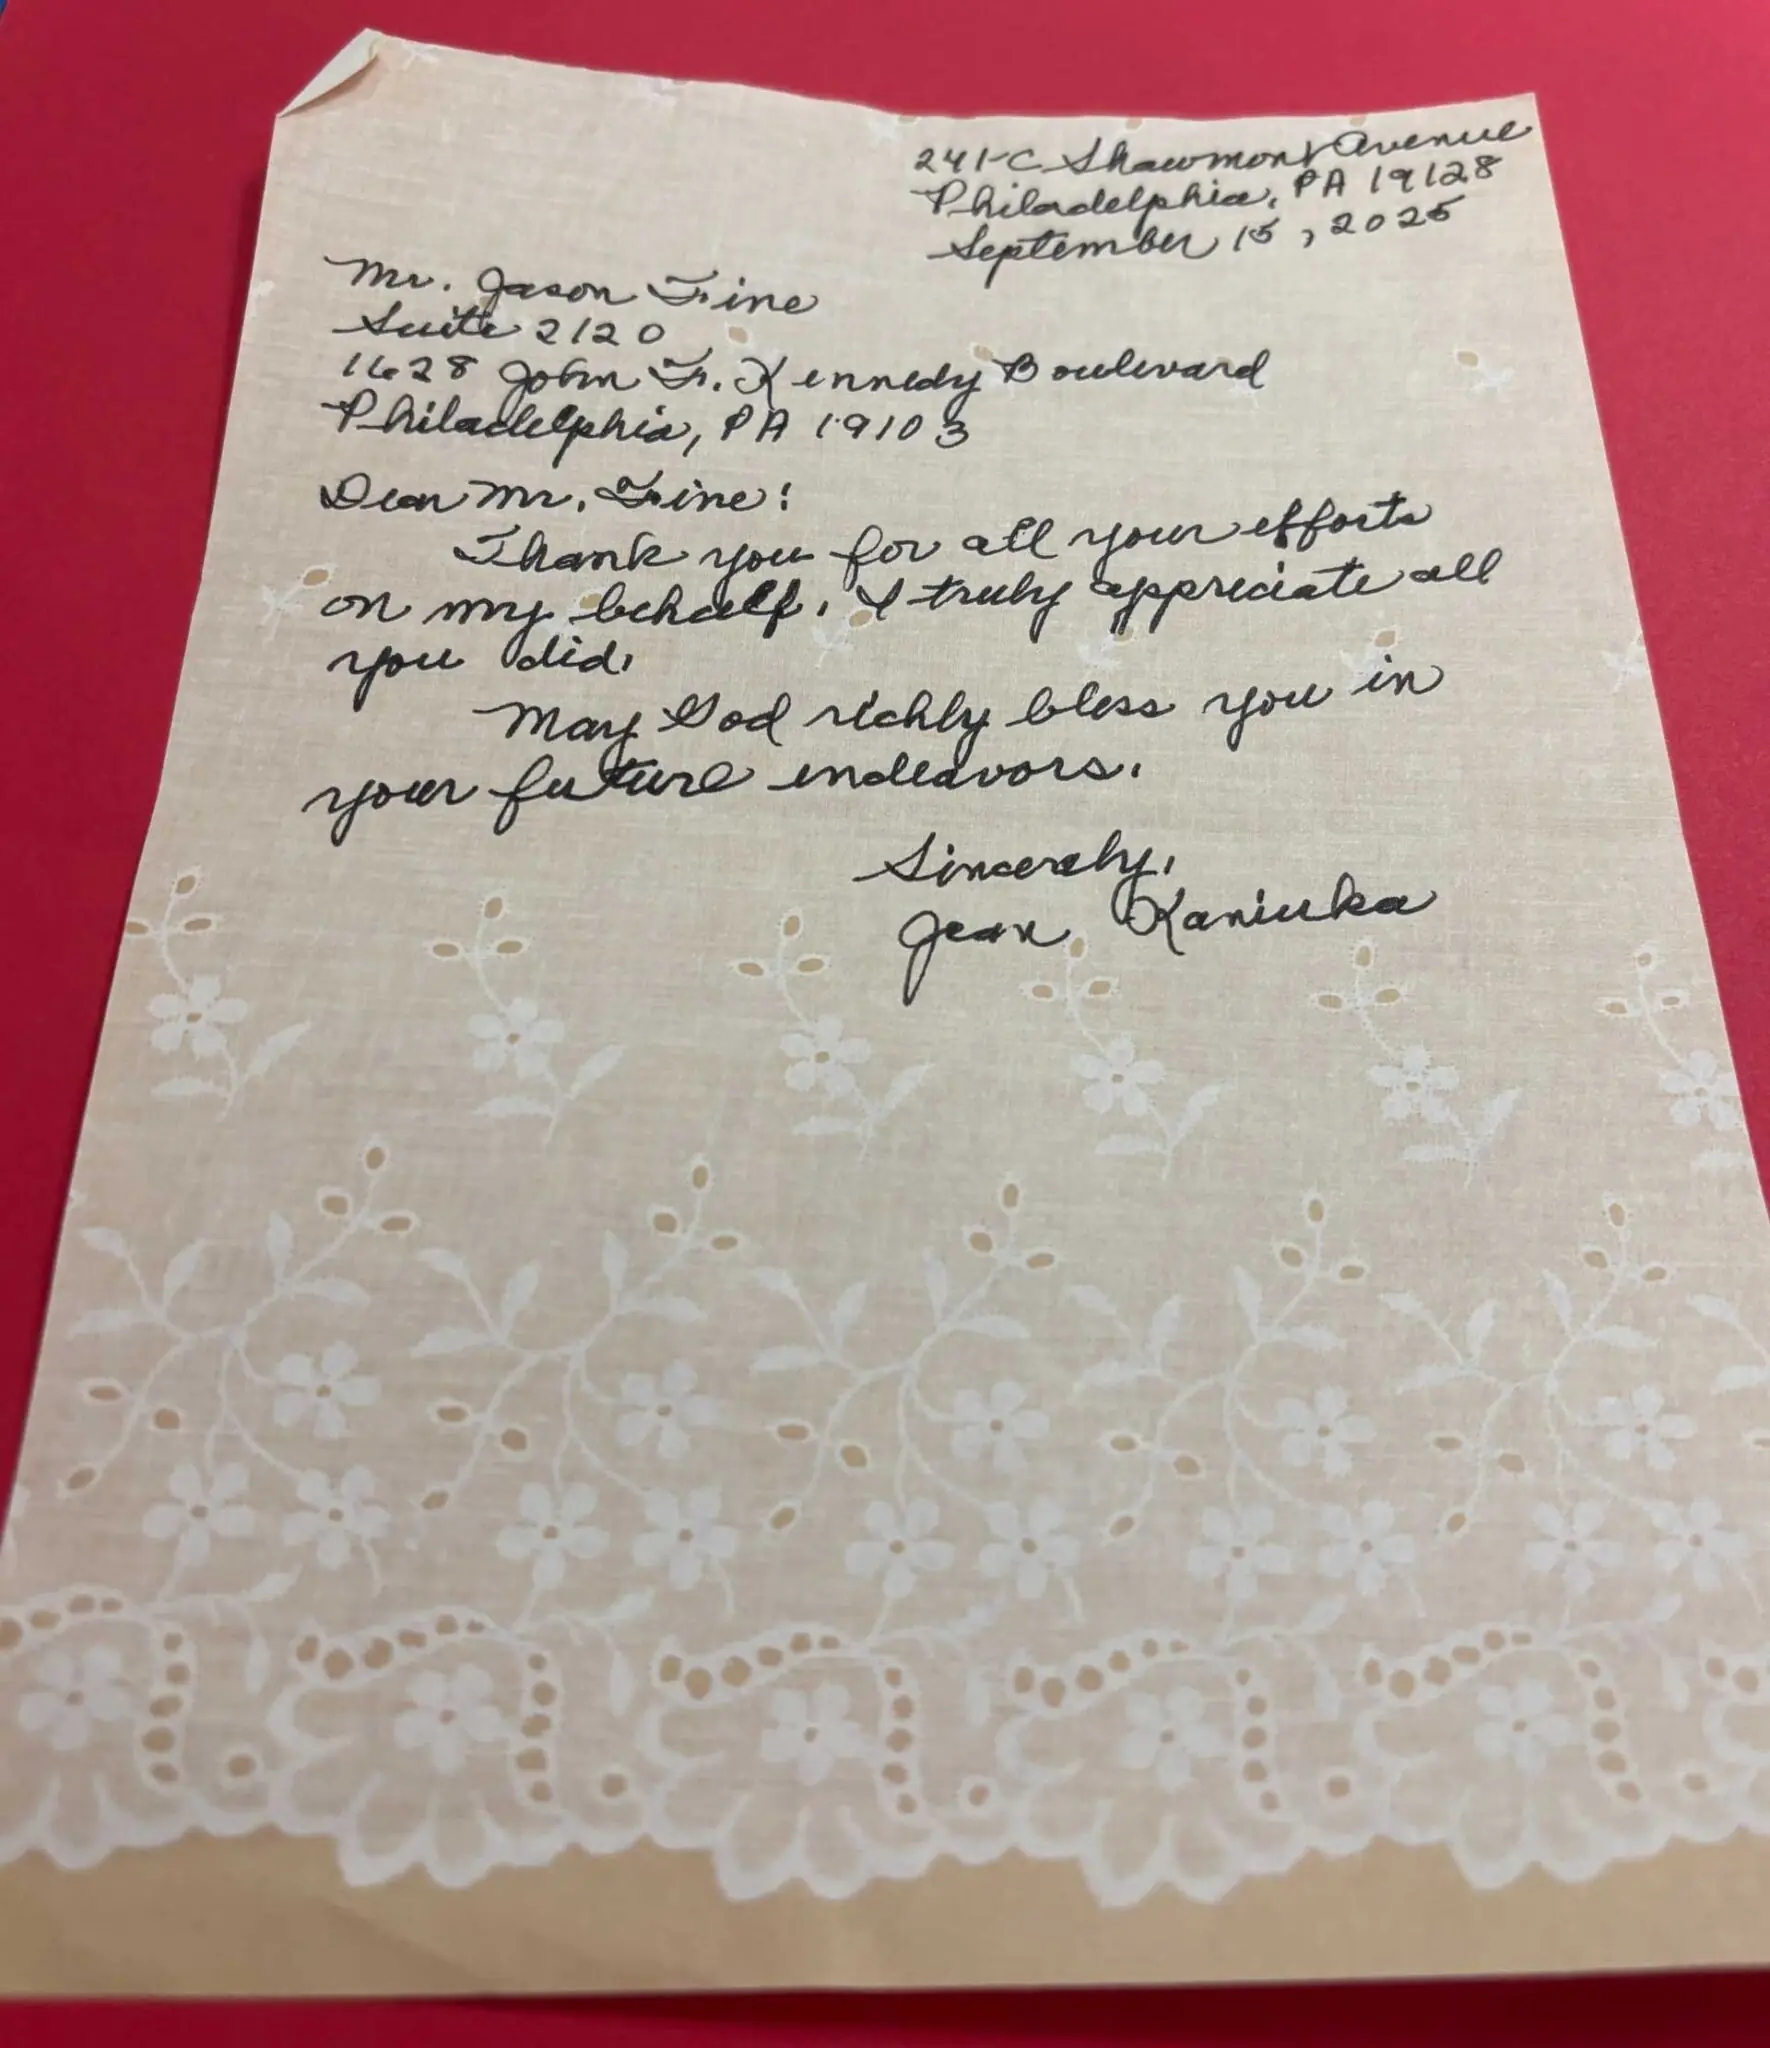 241-C Shawmont Avenue
Philadelphia, PA 19128
September 15, 2025
Mr. Jason Fine
Suite 2120
1628 John F. Kennedy Boulevard
Philadelphia, PA 19103
Dear Mr. Fine:
Thank you for all your efforts
on my behalf. I truly appreciate all
you did.
May God richly bless you in
your future endeavors.
Sincerely,
Jean Kaniuka